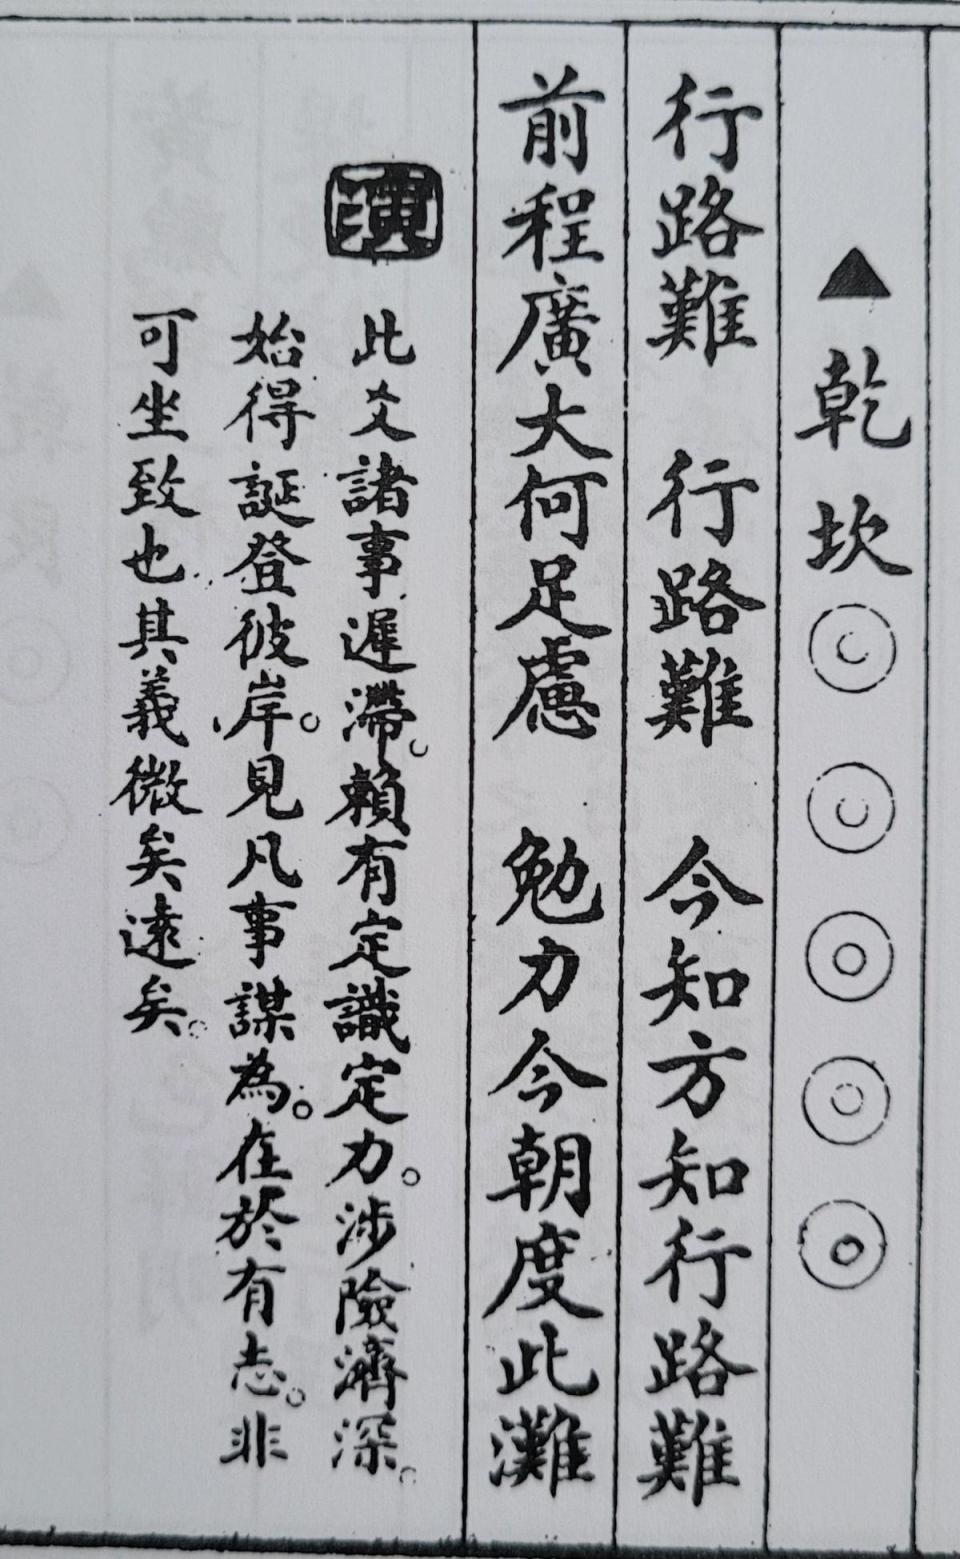 ▲乾坎◎◎◎◎◎
行路難　行路難　今知方知行路難
前程廣大何足慮　勉力今朝度此灘
演
此爻諸事遲滯。賴有定識定力。涉險濟深。
始得誕登彼岸。見凡事謀為。在於有志。非
可坐致也其義微矣遠矣。